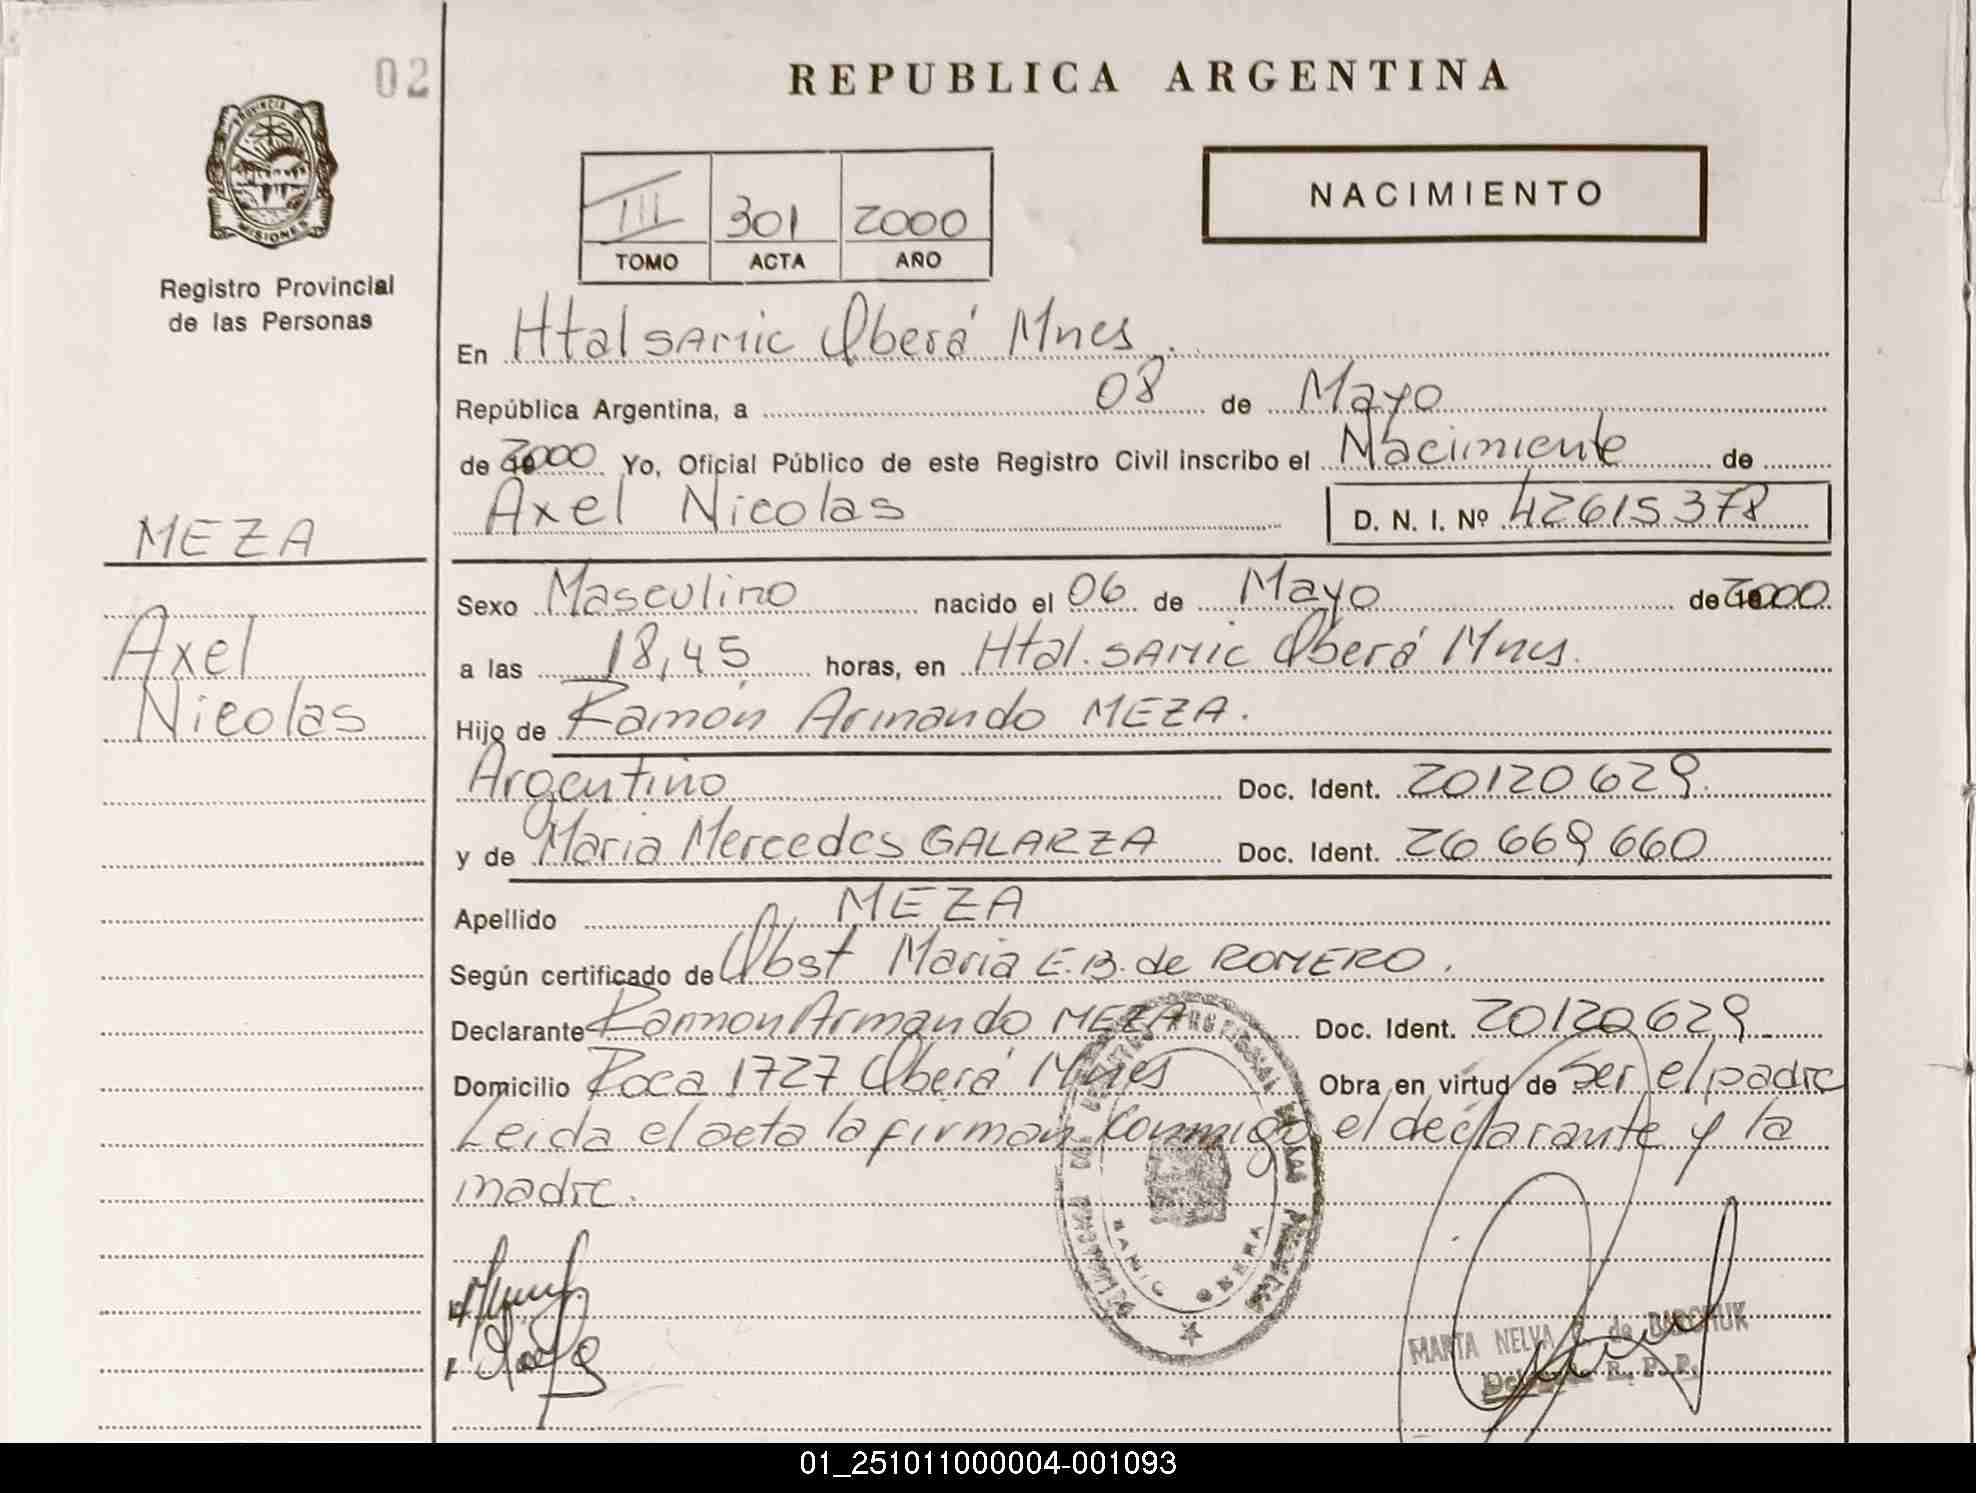 02
REPUBLICA ARGENTINA
PROVINCIA DE
MISIONES
Registro Provincial
de las Personas
III 301 2000
TOMO ACTA AÑO
NACIMIENTO
En Htal SAMIC Oberá Mnes.
República Argentina, a 08 de Mayo
de 2000 Yo, Oficial Público de este Registro Civil inscribo el Nacimiento de
Axel Nicolas D. N. I. Nº 42615378
MEZA
Axel
Nicolas
Sexo Masculino nacido el 06 de Mayo de 2000
a las 18,45 horas, en Htal. SAMIC Oberá Mnes.
Hijo de Ramón Armando MEZA.
Argentino Doc. Ident. 20120629.
y de Maria Mercedes GALARZA Doc. Ident. 26 669 660
Apellido MEZA
Según certificado de Obst Maria E.B. de ROMERO.
Declarante Ramon Armando MEZA Doc. Ident. 20120629
Domicilio Roca 1727 Oberá Mnes Obra en virtud de ser el padre
Leida el acta la firman conmigo el declarante y la
madre.
SAMIC OBERA
MARTA NELVA de
R. P. P.
01_251011000004-001093